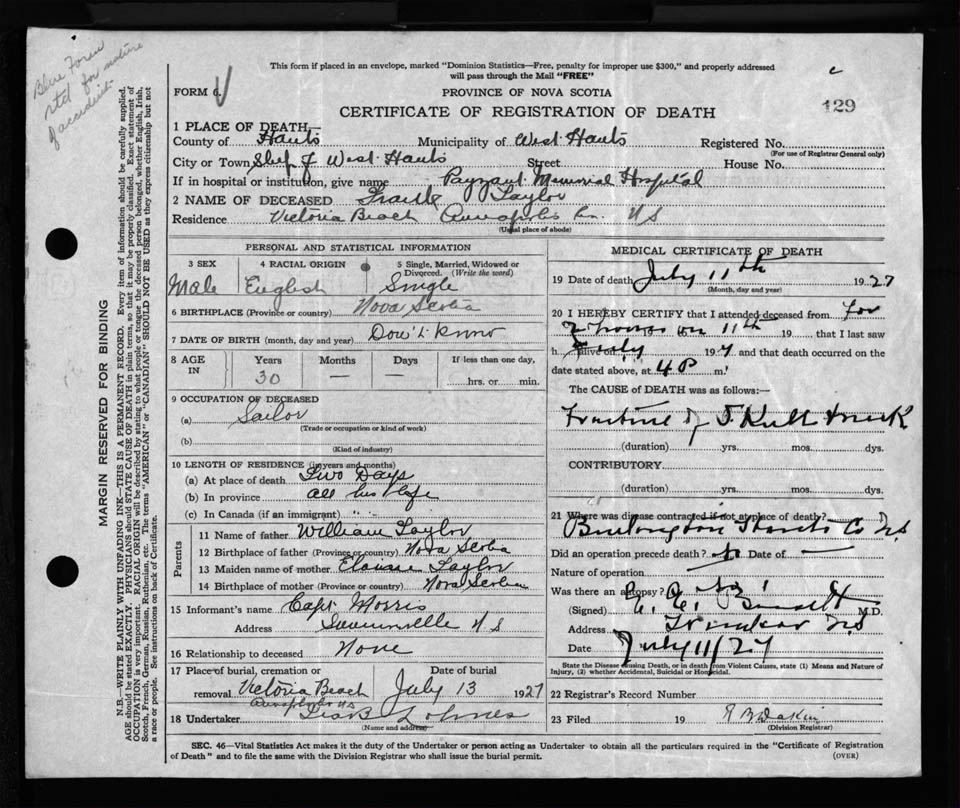 Blue Form
for nature
of accident
This form if placed in an envelope, marked "Dominion Statistics—Free, penalty for improper use $300," and properly addressed
will pass through the Mail "FREE"
FORM 6.
PROVINCE OF NOVA SCOTIA
CERTIFICATE OF REGISTRATION OF DEATH
129
1 PLACE OF DEATH—
County of Hants Municipality of West Hants Registered No.
(For use of Registrar General only)
City or Town of West Hants Street House No.
If in hospital or institution, give name Payzant Memorial Hospital
2 NAME OF DECEASED Taylor
Residence Victoria Beach Annapolis Co. N S
(Usual place of abode)
PERSONAL AND STATISTICAL INFORMATION
3 SEX Male
4 RACIAL ORIGIN English
5 Single, Married, Widowed or Divorced. (Write the word) Single
6 BIRTHPLACE (Province or country) Nova Scotia
7 DATE OF BIRTH (month, day and year) Don't Know
8 AGE IN Years Months Days If less than one day,
30 — — hrs. or min.
9 OCCUPATION OF DECEASED
(a) Sailor
(Trade or occupation or kind of work)
(b)
(Kind of industry)
10 LENGTH OF RESIDENCE (in years and months)
(a) At place of death Two Days
(b) In province all his life
(c) In Canada (if an immigrant) " "
Parents
11 Name of father William Taylor
12 Birthplace of father (Province or country) Nova Scotia
13 Maiden name of mother Taylor
14 Birthplace of mother (Province or country) Nova Scotia
15 Informant's name Capt Morris
Address N S
16 Relationship to deceased None
17 Place of burial, cremation or removal Date of burial
Victoria Beach July 13 1927
Annapolis Co N S
18 Undertaker
(Name and address)
MEDICAL CERTIFICATE OF DEATH
19 Date of death July 11th 1927
(Month, day and year)
20 I HEREBY CERTIFY that I attended deceased from For
2 hours on 11th 19 that I last saw
h alive on July 19 7 and that death occurred on
date stated above, at 4 P m.
The CAUSE of DEATH was as follows:—
Fracture of Skull
(duration) yrs. mos. dys.
CONTRIBUTORY
(duration) yrs. mos. dys.
21 Where was disease contracted if not at place of death?
Burlington Hants Co N.S
Did an operation precede death? No Date of —
Nature of operation —
Was there an autopsy? No
(Signed) M.D.
Address Windsor N.S
Date July 11/27
State the Disease causing Death, or in death from Violent Causes, state (1) Means and Nature of
Injury, (2) whether Accidental, Suicidal or Homicidal.
22 Registrar's Record Number
23 Filed 19
(Division Registrar)
SEC. 46—Vital Statistics Act makes it the duty of the Undertaker or person acting as Undertaker to obtain all the particulars required in the "Certificate of Registration
of Death" and to file the same with the Division Registrar who shall issue the burial permit. (OVER)
MARGIN RESERVED FOR BINDING
N.B.—WRITE PLAINLY WITH UNFADING INK—THIS IS A PERMANENT RECORD. Every item of information should be carefully supplied.
AGE should be stated EXACTLY. PHYSICIANS should STATE CAUSE OF DEATH in plain terms, so that it may be properly classified. Exact statement of
OCCUPATION is very important. RACIAL ORIGIN will be described by stating to what people or tongue the deceased person belonged, whether English, Irish,
Scotch, French, German, Russian, Ruthenian, etc. The terms "AMERICAN" or "CANADIAN" SHOULD NOT BE USED as they express citizenship but not
a race or people. See instructions on back of Certificate.